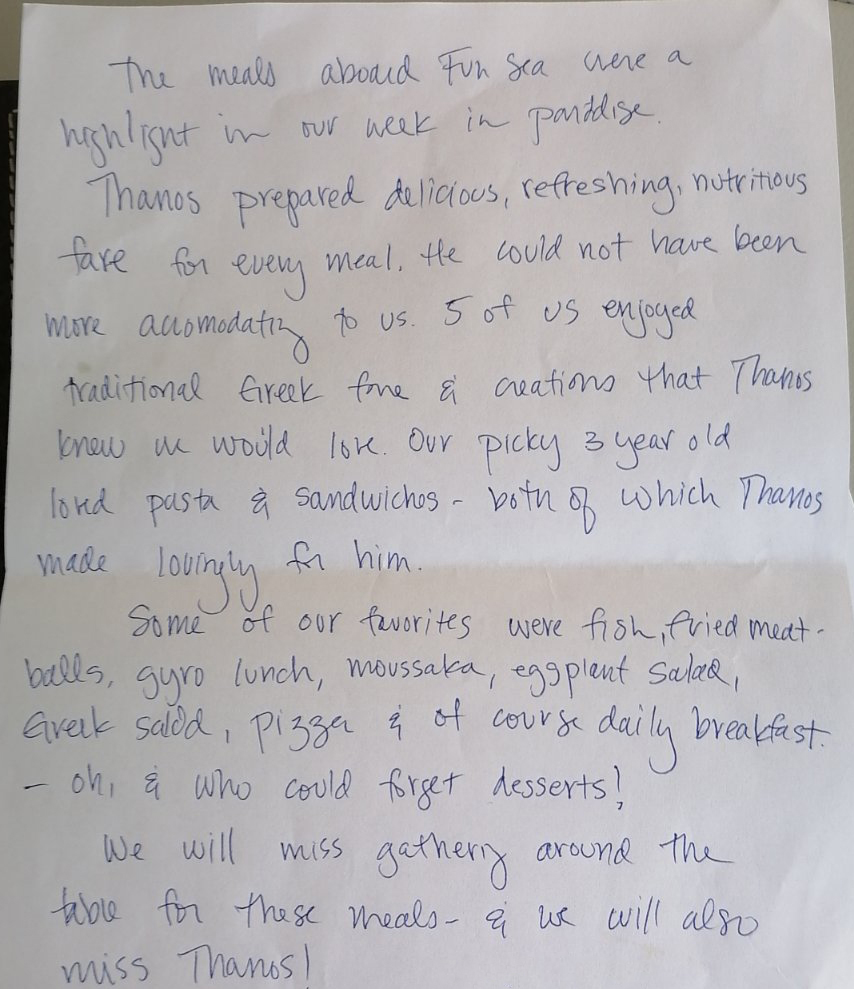 The meals aboard Fun Sea were a
highlight in our week in paradise.
Thanos prepared delicious, refreshing, nutritious
fare for every meal. He could not have been
more accomodating to us. 5 of us enjoyed
traditional Greek fare & creations that Thanos
knew we would love. Our picky 3 year old
loved pasta & sandwiches - both of which Thanos
made lovingly for him.
Some of our favorites were fish, fried meat-
balls, gyro lunch, moussaka, eggplant salad,
Greek salad, pizza & of course daily breakfast.
- oh, & who could forget desserts!
We will miss gathering around the
table for these meals - & we will also
miss Thanos!